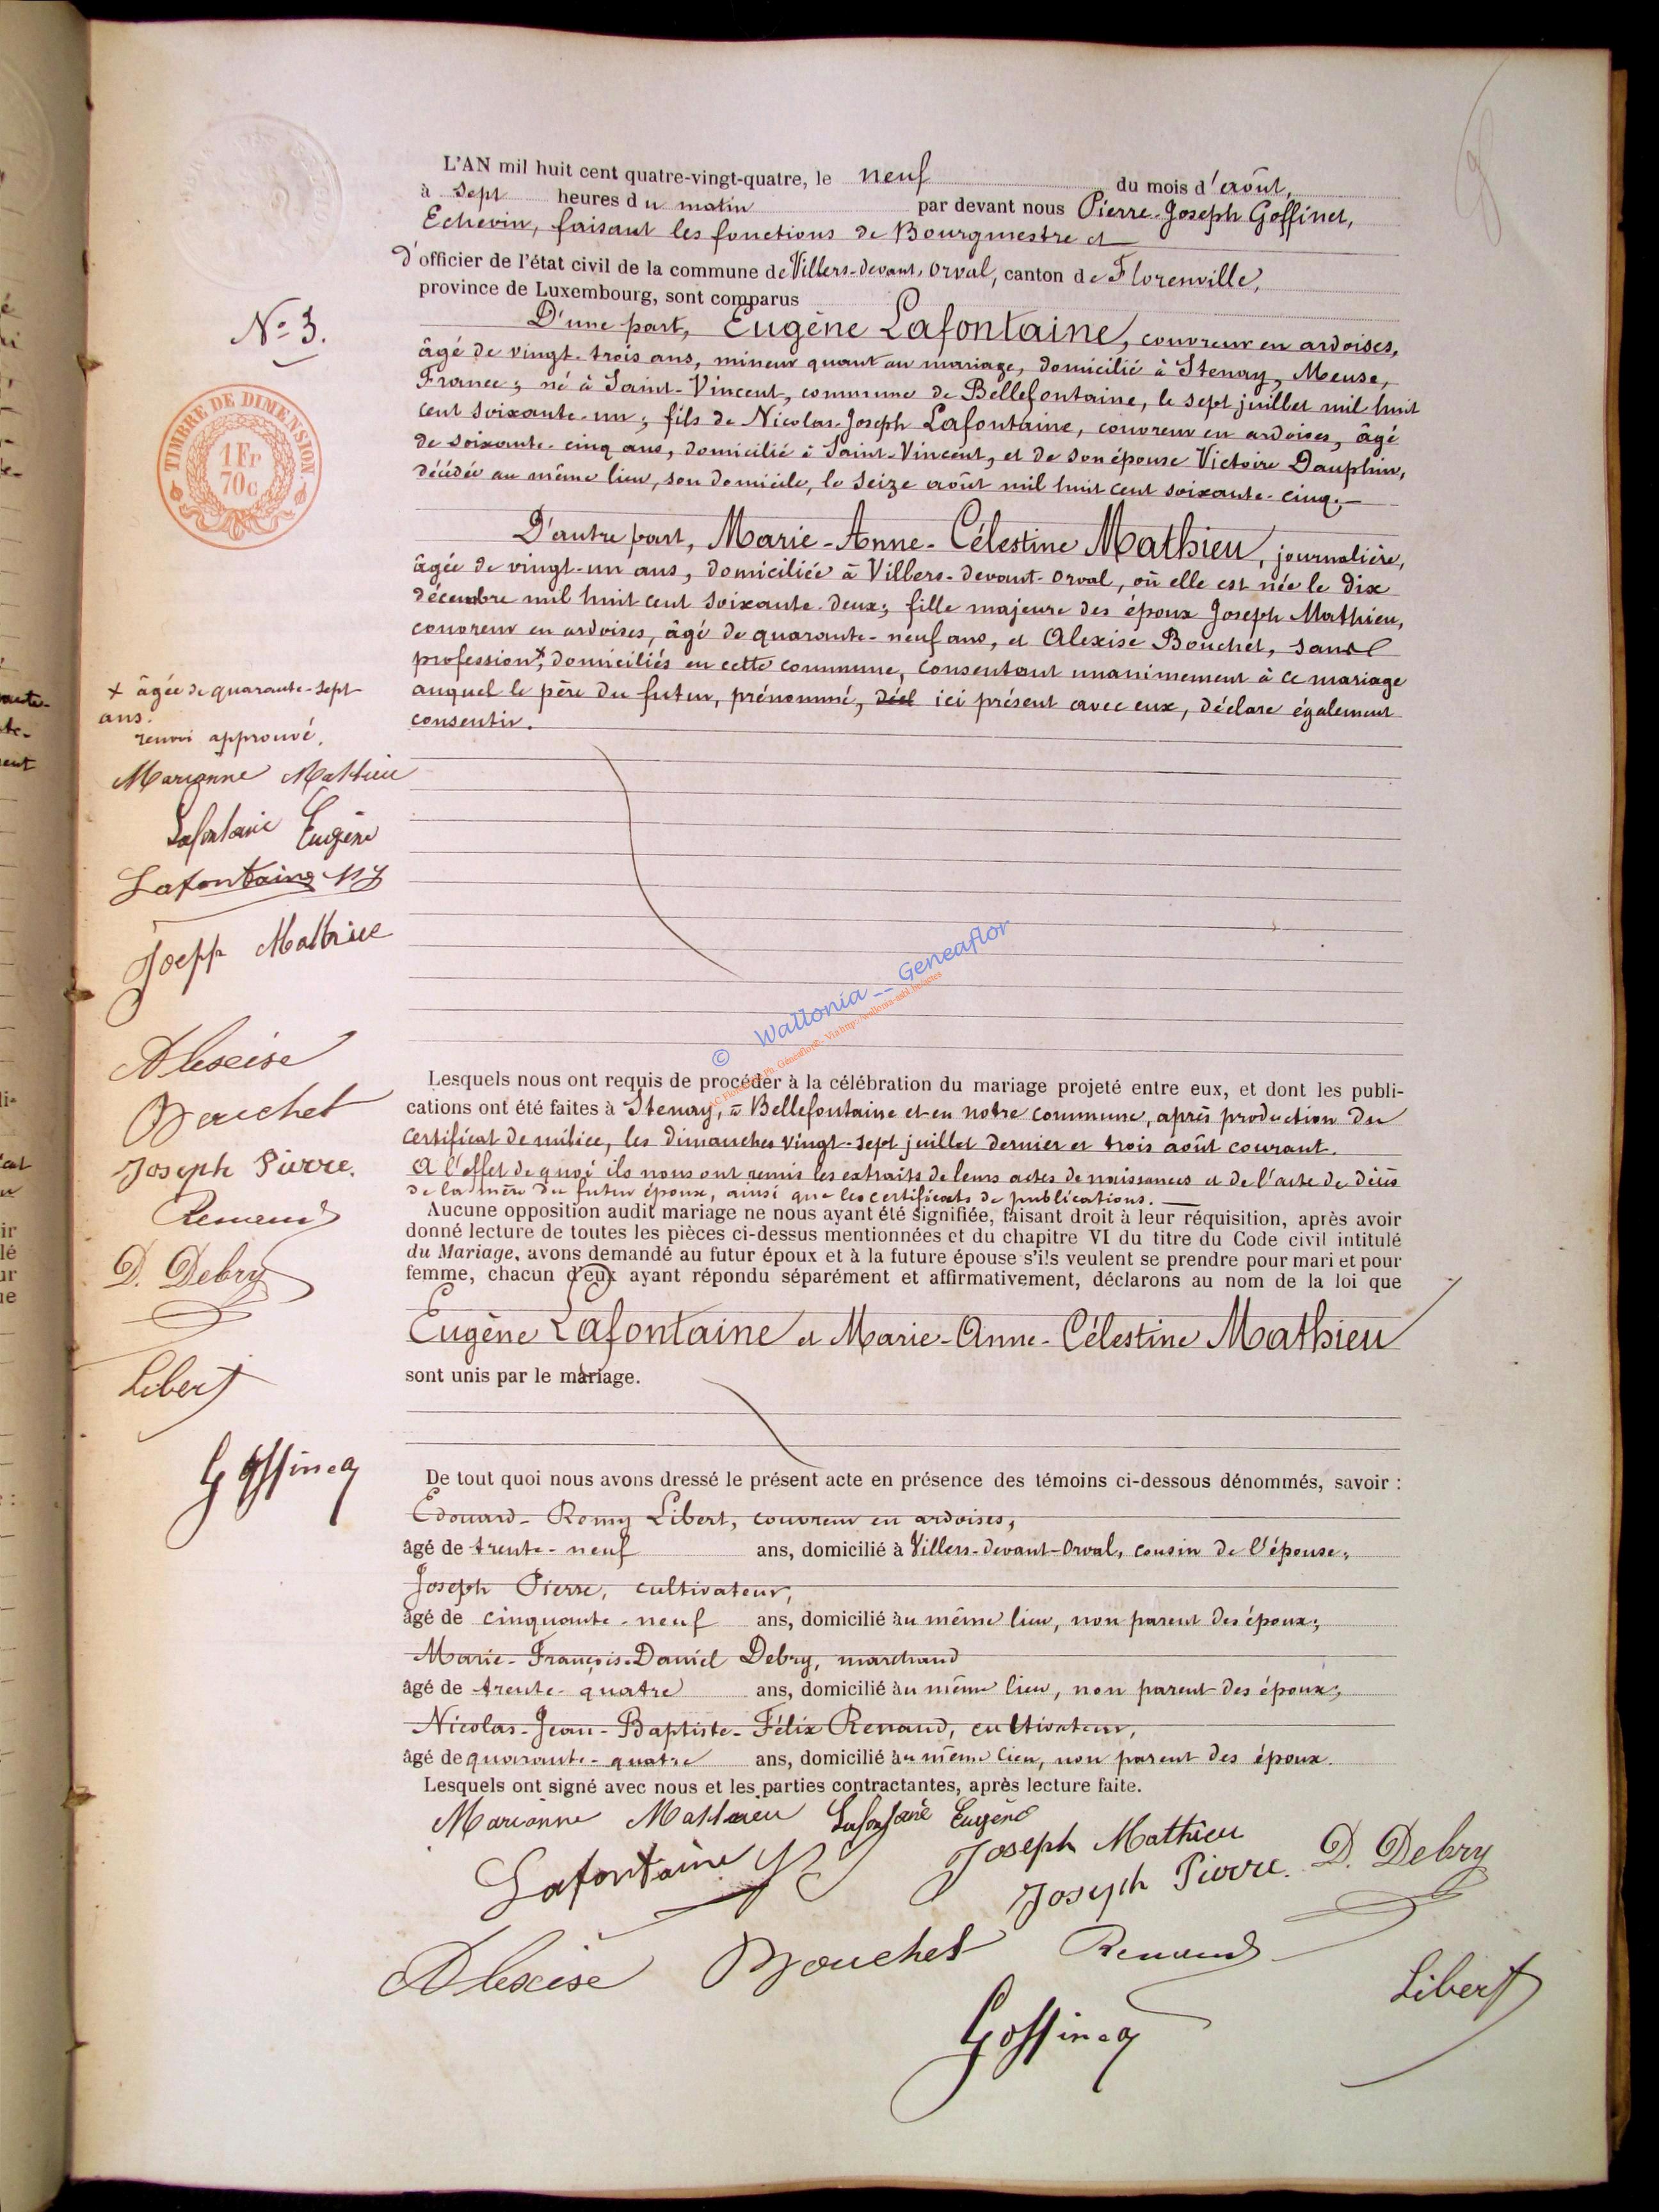 L'AN mil huit cent quatre-vingt-quatre, le neuf du mois d'août,
à sept heures du matin par devant nous Pierre-Joseph Goffinet,
Echevin, faisant les fonctions de Bourgmestre et
d'officier de l'état civil de la commune de Villers-devant-Orval, canton de Florenville,
province de Luxembourg, sont comparus
N° 3.
D'une part, Eugène Lafontaine, couvreur en ardoises,
âgé de vingt-trois ans, mineur quant au mariage, domicilié à Stenay, Meuse,
France; né à Saint-Vincent, commune de Bellefontaine, le sept juillet mil huit
cent soixante-un; fils de Nicolas-Joseph Lafontaine, couvreur en ardoises, âgé
de soixante-cinq ans, domicilié à Saint-Vincent, et de son épouse Victoire Dauphin,
décédée au même lieu, son domicile, le seize août mil huit cent soixante-cinq.
TIMBRE DE DIMENSION.
1 Fr
70c
D'autre part, Marie-Anne-Célestine Mathieu, journalière,
âgée de vingt-un ans, domiciliée à Villers-devant-Orval, où elle est née le dix
décembre mil huit cent soixante-deux; fille majeure des époux Joseph Mathieu,
couvreur en ardoises, âgé de quarante-neuf ans, et Alexise Bouchet, sans
profession, x domiciliés en cette commune, consentant unanimement à ce mariage
auquel le père du futur, prénommé, décl ici présent avec eux, déclare également
consentir.
x âgée de quarante-sept
ans.
renvoi approuvé.
Marianne Mathieu
Lafontaine Eugène
Lafontaine NJ
Josepp Mathieu
Alexise
Bouchet
Joseph Pierre.
Renaud
D. Debry
Libert
Goffinet
© Wallonia -- Geneaflor
Lesquels nous ont requis de procéder à la célébration du mariage projeté entre eux, et dont les publi-
cations ont été faites à Stenay, à Bellefontaine et en notre commune, après production du
certificat de milice, les dimanches vingt-sept juillet dernier et trois août courant.
A l'effet de quoi ils nous ont remis les extraits de leurs actes de naissances et de l'acte de décès
de la mère du futur époux, ainsi que les certificats de publications.
Aucune opposition audit mariage ne nous ayant été signifiée, faisant droit à leur réquisition, après avoir
donné lecture de toutes les pièces ci-dessus mentionnées et du chapitre VI du titre du Code civil intitulé
du Mariage, avons demandé au futur époux et à la future épouse s'ils veulent se prendre pour mari et pour
femme, chacun d'eux ayant répondu séparément et affirmativement, déclarons au nom de la loi que
Eugène Lafontaine et Marie-Anne-Célestine Mathieu
sont unis par le mariage.
De tout quoi nous avons dressé le présent acte en présence des témoins ci-dessous dénommés, savoir :
Edouard-Romy Libert, couvreur en ardoises,
âgé de trente-neuf ans, domicilié à Villers-devant-Orval, cousin de l'épouse;
Joseph Pierre, cultivateur,
âgé de cinquante-neuf ans, domicilié au même lieu, non parent des époux;
Marie-François-Daniel Debry, marchand
âgé de trente-quatre ans, domicilié au même lieu, non parent des époux;
Nicolas-Jean-Baptiste-Félix Renaud, cultivateur,
âgé de quarante-quatre ans, domicilié au même lieu, non parent des époux.
Lesquels ont signé avec nous et les parties contractantes, après lecture faite.
Marianne Mathieu Lafontaine Eugène
Lafontaine NJ Joseph Mathieu
Joseph Pierre. D. Debry
Alexise Bouchet Renaud
Libert
Goffinet